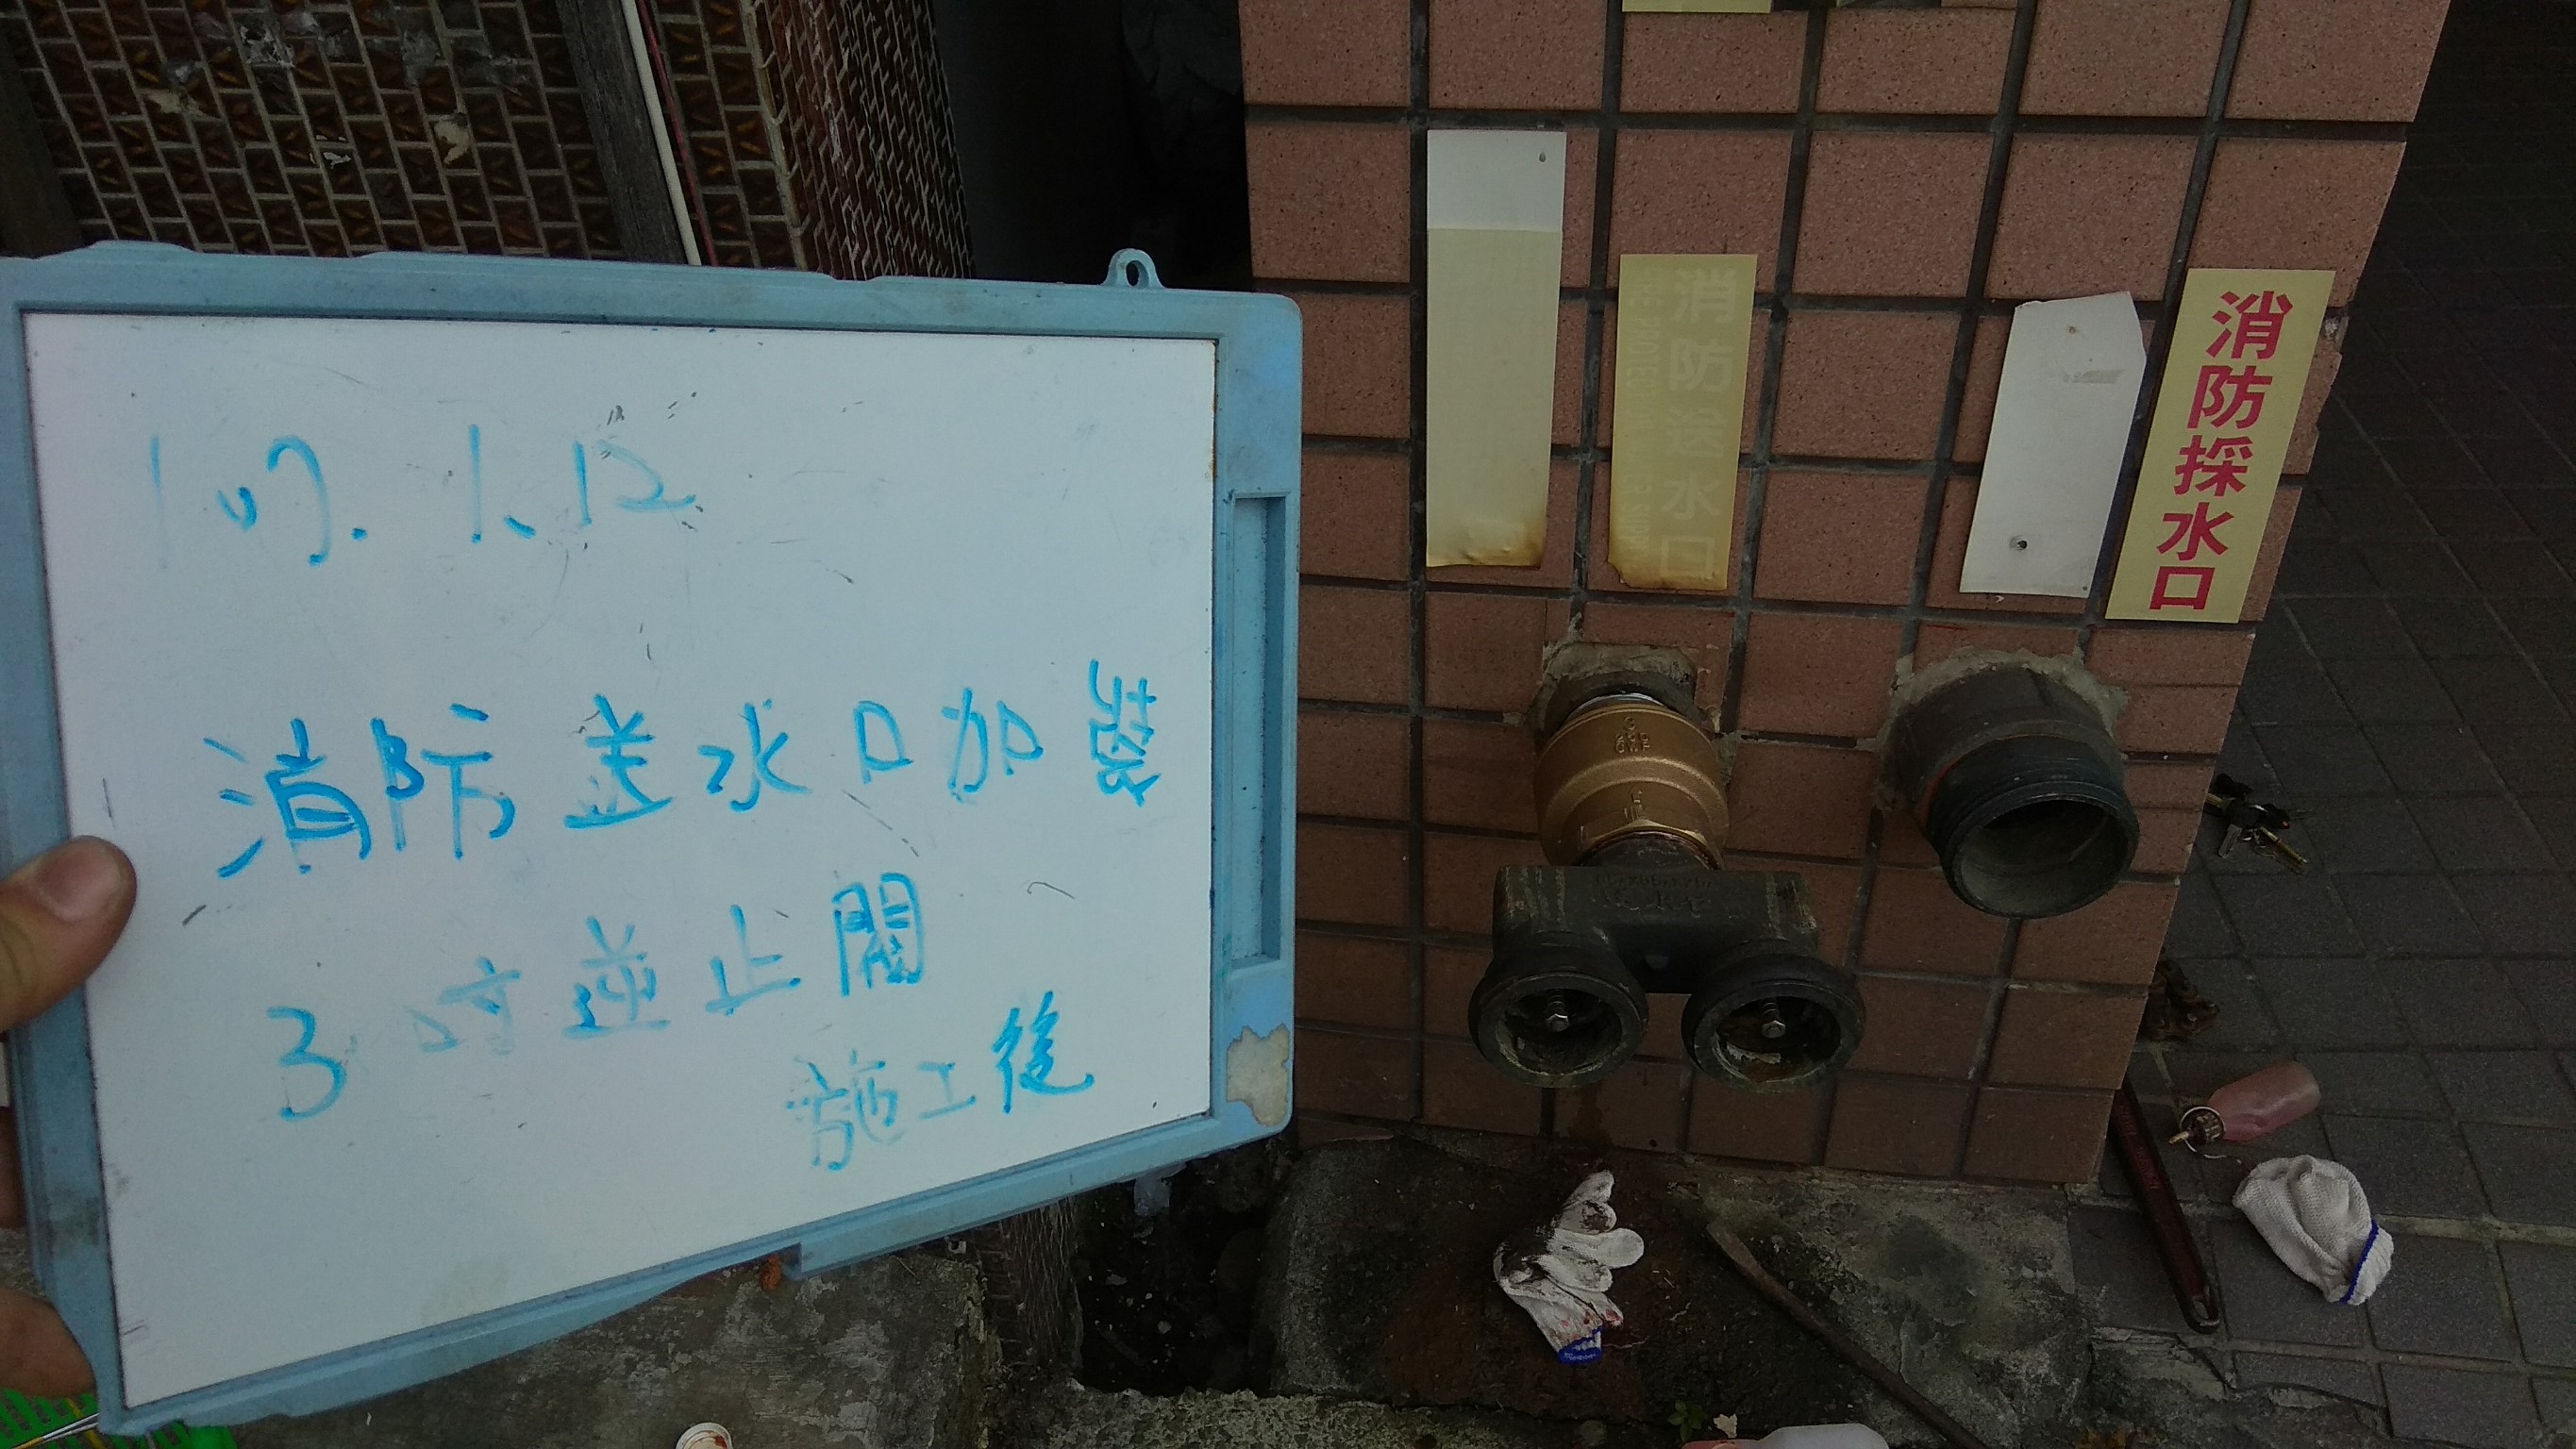 107.1.12
消防送水口加裝
3吋逆止閥
施工後
消防送水口
消防採水口